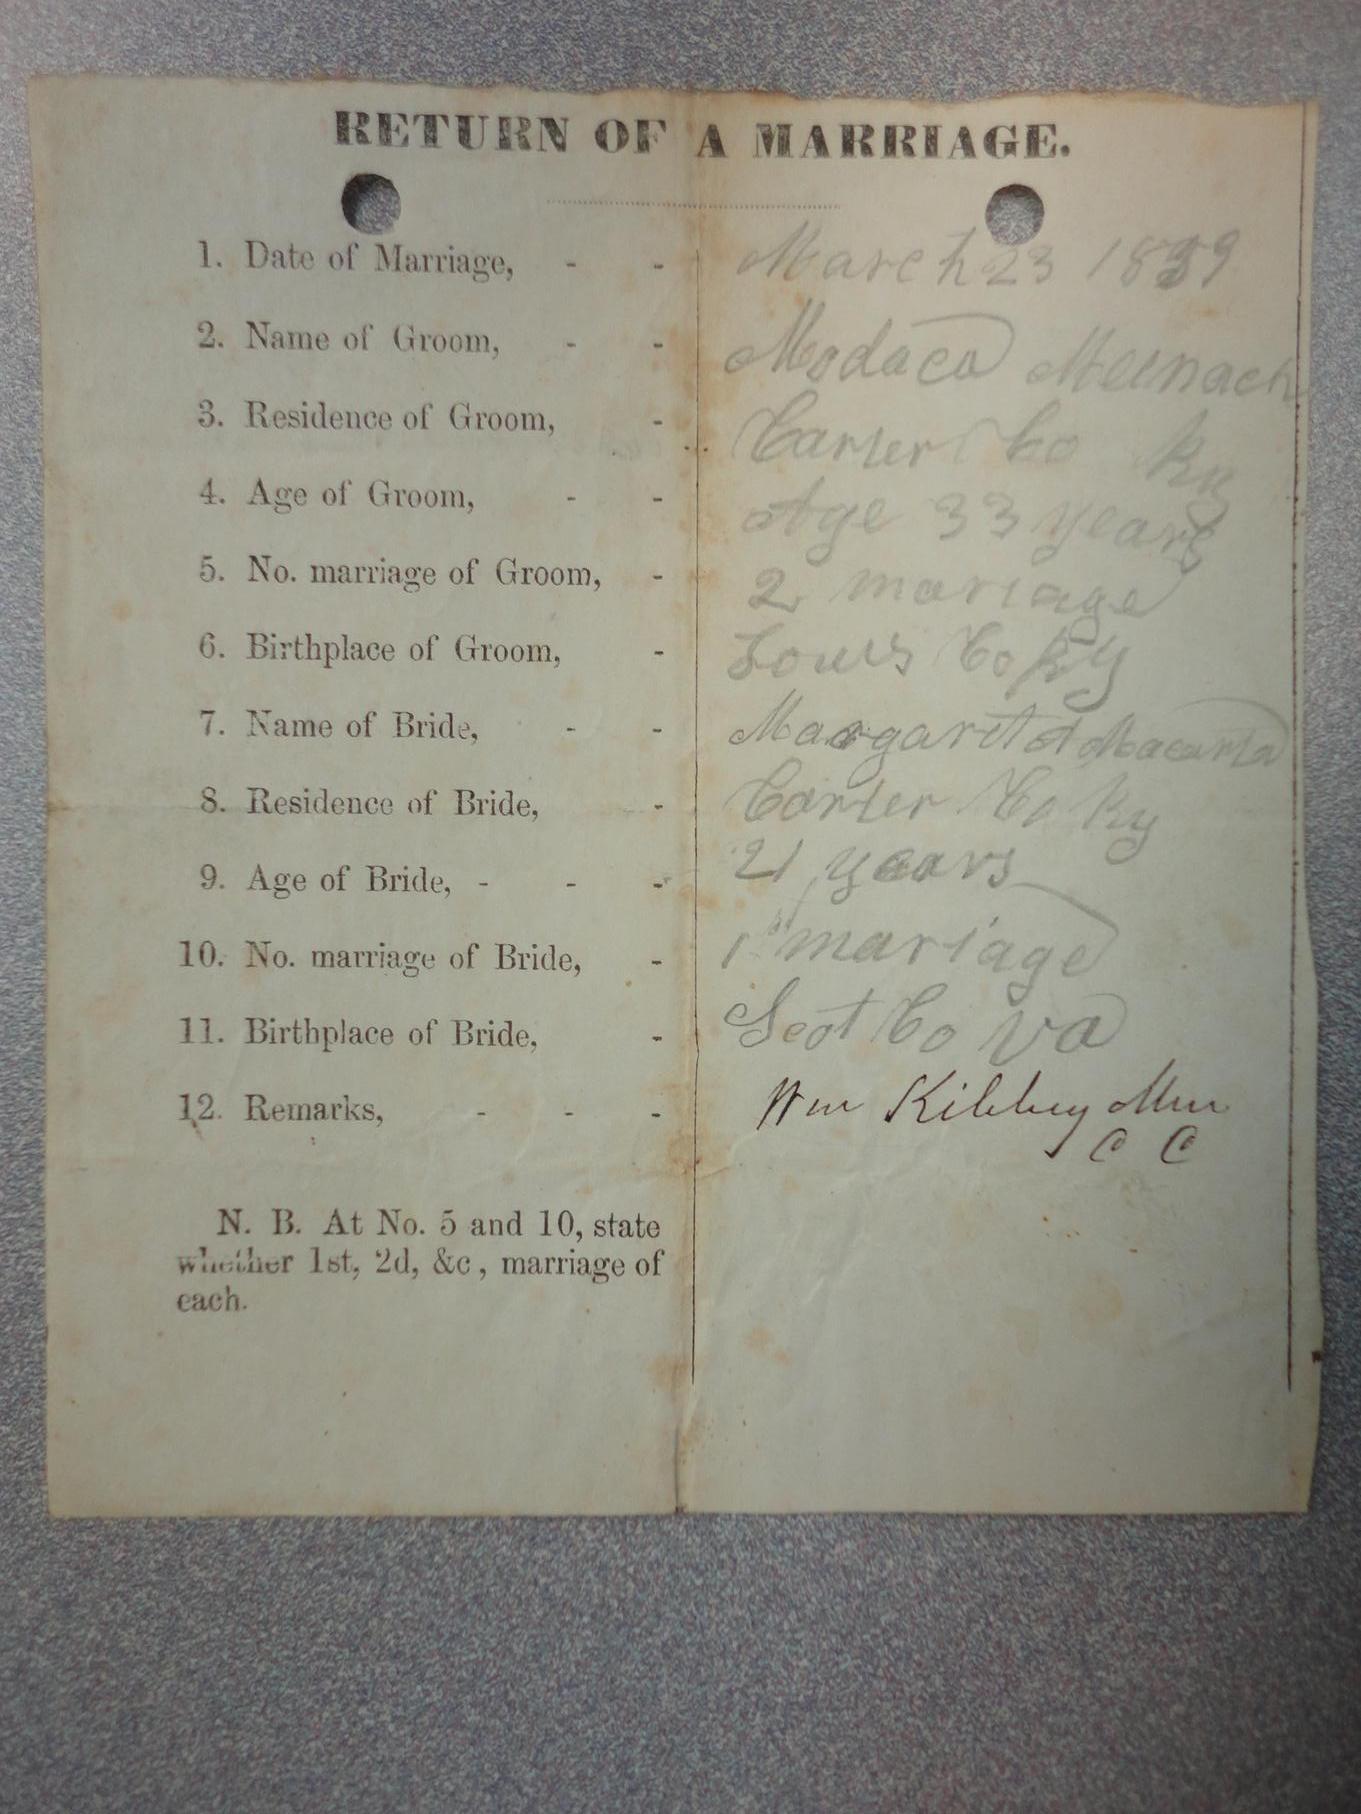 RETURN OF A MARRIAGE.
1. Date of Marriage, - - March 23 1859
2. Name of Groom, - - Modaca Meenach
3. Residence of Groom, - Carter Co Ky
4. Age of Groom, - - Age 33 years
5. No. marriage of Groom, - 2 mariage
6. Birthplace of Groom, - Lowis Co Ky
7. Name of Bride, - - Margaret
8. Residence of Bride, - Carter Co Ky
9. Age of Bride, - - - 21 years
10. No. marriage of Bride, - 1st mariage
11. Birthplace of Bride, - Scot Co va
12. Remarks, - - - Wm Kibbey Mm
C C
N. B. At No. 5 and 10, state
whether 1st, 2d, &c, marriage of
each.